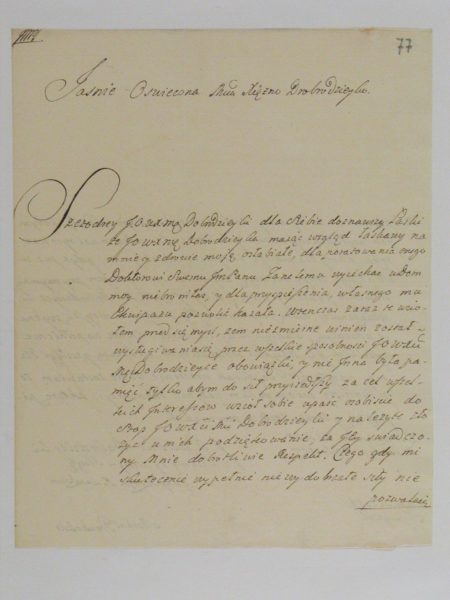 77
Jaśnie Oświecona Mcia Xiężno Dobrodzieyko.
Szczodrey J.O. Dobrodzieyki dla Siebie doznawszy Łaski
że J.O. Dobrodzieyka maiąc wzgląd łaskawy na
mnie y zdrowie moie osłabiałe, dla poratowania onego
Doktorowi Swemu Jmć Panu wyiechać w Dom
moy nie, y dla przyspieszenia, własnego mu
Ekwipażu pozwolić kazała. Wtenczas zaraz
łem przedsię myśl, żem niezmiernie winien został
wysługiwania się przez wszelkie sposobności J.O.
Dobrodzieyce obowiązki, y nie Inna była pa-
mięć tylko abym do sił przyszedłszy za cel wszel-
kich Interessow wziął sobie upaść osobiście do
Stop J.O. Dobrodzieyki y należyte zło-
żyć u nich podziękowanie, za ten świadczo-
ny Mnie dobrotliwie Respekt. Czego gdy mi
skutecznie wypełnić niewydobrzałe siły nie
pozwalaią